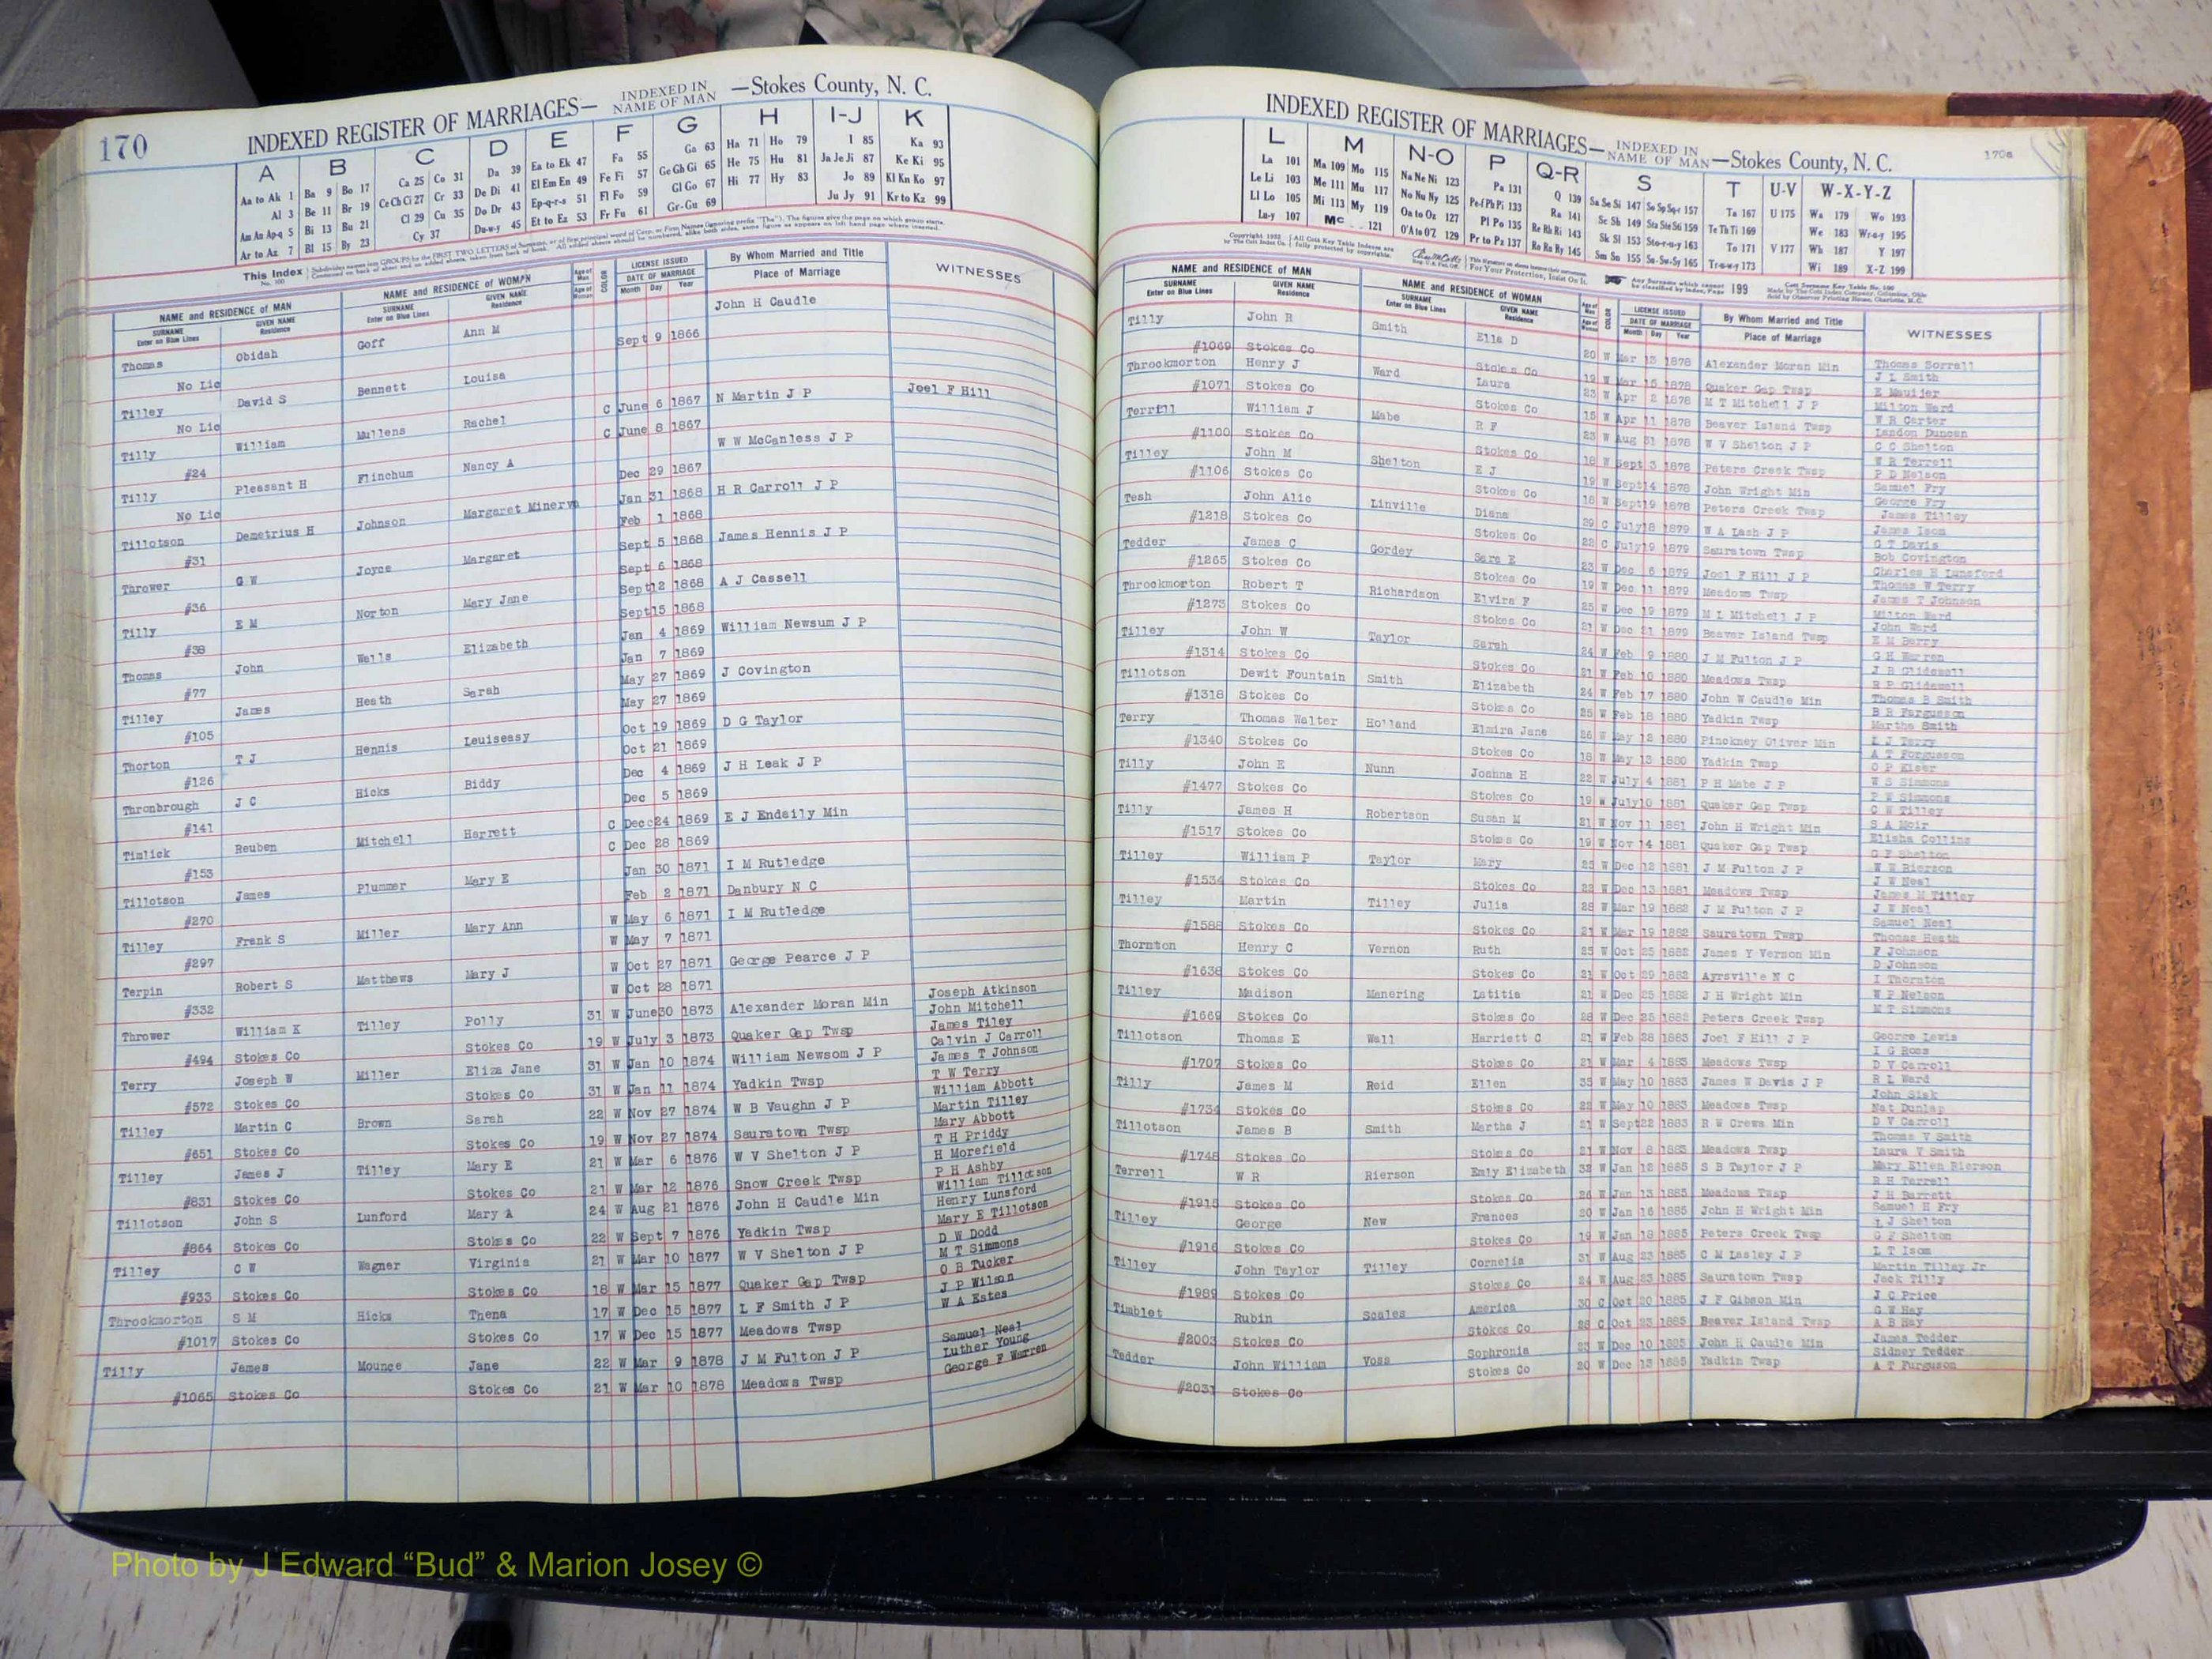 170
INDEXED REGISTER OF MARRIAGES— INDEXED IN NAME OF MAN —Stokes County, N. C.
A B C D E F G H I-J K
Aa to Ak 1 Ba 9 Bo 17 Ca 25 Co 31 Da 39 Ea to Ek 47 Fa 55 Ga 63 Ha 71 Ho 79 I 85 Ka 93
Al 3 Be 11 Br 19 Ce Ch Ci 27 Cr 33 De Di 41 El Em En 49 Fe Fi 57 Ge Gh Gi 65 He 75 Hu 81 Ja Je Ji 87 Ke Ki 95
Am An Ap-q 5 Bi 13 Bu 21 Cl 29 Cu 35 Do Dr 43 Ep-q-r-s 51 Fl Fo 59 Gl Go 67 Hi 77 Hy 83 Jo 89 Kl Kn Ko 97
Ar to Az 7 Bl 15 By 23 Cy 37 Du-w-y 45 Et to Ez 53 Fr Fu 61 Gr-Gu 69 Ju Jy 91 Kr to Kz 99
This Index No. 100
NAME and RESIDENCE of MAN NAME and RESIDENCE of WOMAN Age of Man Age of Woman COLOR LICENSE ISSUED By Whom Married and Title WITNESSES
SURNAME Enter on Blue Lines GIVEN NAME Residence SURNAME Enter on Blue Lines GIVEN NAME Residence DATE OF MARRIAGE Month Day Year Place of Marriage
Thomas Obidah Goff Ann M John H Caudle
No Lic Sept 9 1866
Tilley David S Bennett Louisa
No Lic
Tilly William Mullens Rachel C June 6 1867 N Martin J P Joel F Hill
#24 C June 8 1867
Tilly Pleasant H Flinchum Nancy A W W McCanless J P
No Lic Dec 29 1867
Tillotson Demetrius H Johnson Margaret Minerva Jan 31 1868 H R Carroll J P
#31 Feb 1 1868
Thrower G W Joyce Margaret Sept 5 1868 James Hennis J P
#36 Sept 6 1868
Tilly E M Norton Mary Jane Sept 12 1868 A J Cassell
#38 Sept 15 1868
Thomas John Walls Elizabeth Jan 4 1869 William Newsum J P
#77 Jan 7 1869
Tilley James Heath Sarah May 27 1869 J Covington
#105 May 27 1869
Thorton T J Hennis Leuiseasy Oct 19 1869 D G Taylor
#126 Oct 21 1869
Thronbrough J C Hicks Biddy Dec 4 1869 J H Leak J P
#141 Dec 5 1869
Timlick Reuben Mitchell Harrett C Dec 24 1869 E J Endaily Min
#153 C Dec 28 1869
Tillotson James Plummer Mary E Jan 30 1871 I M Rutledge
#270 Feb 2 1871 Danbury N C
Tilley Frank S Miller Mary Ann W May 6 1871 I M Rutledge
#297 W May 7 1871
Terpin Robert S Matthews Mary J W Oct 27 1871 George Pearce J P
#332 W Oct 28 1871
Thrower William K Tilley Polly 31 W June 30 1873 Alexander Moran Min Joseph Atkinson
John Mitchell
#494 Stokes Co Stokes Co 19 W July 3 1873 Quaker Gap Twsp James Tiley
Terry Joseph W Miller Eliza Jane 31 W Jan 10 1874 William Newsom J P Calvin J Carroll
James T Johnson
#572 Stokes Co Stokes Co 31 W Jan 11 1874 Yadkin Twsp T W Terry
Tilley Martin C Brown Sarah 22 W Nov 27 1874 W B Vaughn J P William Abbott
Martin Tilley
#651 Stokes Co Stokes Co 19 W Nov 27 1874 Sauratown Twsp Mary Abbott
Tilley James J Tilley Mary E 21 W Mar 6 1876 W V Shelton J P T H Priddy
H Morefield
#831 Stokes Co Stokes Co 21 W Mar 12 1876 Snow Creek Twsp P H Ashby
Tillotson John S Lunford Mary A 24 W Aug 21 1876 John H Caudle Min William Tillotson
Henry Lunsford
#864 Stokes Co Stokes Co 22 W Sept 7 1876 Yadkin Twsp Mary E Tillotson
Tilley C W Wagner Virginia 21 W Mar 10 1877 W V Shelton J P D W Dodd
M T Simmons
#933 Stokes Co Stokes Co 18 W Mar 15 1877 Quaker Gap Twsp O B Tucker
Throckmorton S M Hicks Thena 17 W Dec 15 1877 L F Smith J P J P Wilson
W A Estes
#1017 Stokes Co Stokes Co 17 W Dec 15 1877 Meadows Twsp
Tilly James Mounce Jane 22 W Mar 9 1878 J M Fulton J P Samuel Neal
Luther Young
#1065 Stokes Co Stokes Co 21 W Mar 10 1878 Meadows Twsp George F Warren
INDEXED REGISTER OF MARRIAGES— INDEXED IN NAME OF MAN —Stokes County, N. C.
170a
L M N-O P Q-R S T U-V W-X-Y-Z
La 101 Ma 109 Mo 115 Na Ne Ni 123 Pa 131 Q 139 Sa Se Si 147 So Sp Sq-r 157 Ta 167 U 175 Wa 179 Wo 193
Le Li 103 Me 111 Mu 117 No Nu Ny 125 Pe-f Ph Pi 133 Ra 141 Sc Sh 149 Sta Ste Sti 159 Te Th Ti 169 We 183 Wr-a-y 195
Ll Lo 105 Mi 113 My 119 Oa to Oz 127 Pl Po 135 Re Rh Ri 143 Sk Sl 153 Sto-r-u-y 163 To 171 V 177 Wh 187 Y 197
Lu-y 107 Mc 121 O'A to O'Z 129 Pr to Pz 137 Ro Ru Ry 145 Sm Sn 155 Su-Sw-Sy 165 Tr-u-w-y 173 Wi 189 X-Z 199
NAME and RESIDENCE of MAN NAME and RESIDENCE of WOMAN Age of Man Age of Woman COLOR LICENSE ISSUED By Whom Married and Title WITNESSES
SURNAME Enter on Blue Lines GIVEN NAME Residence SURNAME Enter on Blue Lines GIVEN NAME Residence DATE OF MARRIAGE Month Day Year Place of Marriage
Tilly John R Smith Ella D 20 W Mar 13 1878 Alexander Moran Min Thomas Sorrell
J L Smith
#1069 Stokes Co Stokes Co 19 W Mar 15 1878 Quaker Gap Twsp
Throckmorton Henry J Ward Laura 23 W Apr 2 1878 M T Mitchell J P Milton Ward
W R Carter
#1071 Stokes Co Stokes Co 15 W Apr 11 1878 Beaver Island Twsp Landon Duncan
Terrill William J Mabe R F 23 W Aug 31 1878 W V Shelton J P C C Shelton
W R Terrell
#1100 Stokes Co Stokes Co 18 W Sept 3 1878 Peters Creek Twsp P D Nelson
Tilley John M Shelton E J 19 W Sept 14 1878 John Wright Min Samuel Fry
George Fry
#1106 Stokes Co Stokes Co 18 W Sept 19 1878 Peters Creek Twsp James Tilley
Tesh John Alic Linville Diana 29 C July 18 1879 W A Lash J P James Isom
G T Davis
#1218 Stokes Co Stokes Co 22 C July 19 1879 Sauratown Twsp Bob Covington
Tedder James C Gordey Sara E 23 W Dec 6 1879 Joel F Hill J P Charles E Lunsford
Thomas W Terry
#1265 Stokes Co Stokes Co 19 W Dec 11 1879 Meadows Twsp James T Johnson
Throckmorton Robert T Richardson Elvira F 25 W Dec 19 1879 M L Mitchell J P Milton Ward
John Ward
#1273 Stokes Co Stokes Co 21 W Dec 21 1879 Beaver Island Twsp E M Berry
Tilley John W Taylor Sarah 24 W Feb 9 1880 J M Fulton J P G H Warren
J B Glidewell
#1314 Stokes Co Stokes Co 21 W Feb 10 1880 Meadows Twsp R P Glidewell
Tillotson Dewit Fountain Smith Elizabeth 24 W Feb 17 1880 John W Caudle Min Thomas B Smith
B R Fargusson
#1318 Stokes Co Stokes Co 25 W Feb 18 1880 Yadkin Twsp Martha Smith
Terry Thomas Walter Holland Elmira Jane 26 W May 12 1880 Pinckney Oliver Min L J Terry
A T Forgusson
#1340 Stokes Co Stokes Co 18 W May 13 1880 Yadkin Twsp O P Kiser
Tilly John E Nunn Joahna H 22 W July 4 1881 P H Mabe J P W S Simmons
P W Simmons
#1477 Stokes Co Stokes Co 19 W July 10 1881 Quaker Gap Twsp C W Tilley
Tilly James H Robertson Susan M 21 W Nov 11 1881 John H Wright Min S A Moir
Elisha Collins
#1517 Stokes Co Stokes Co 19 W Nov 14 1881 Quaker Gap Twsp G F Shelton
Tilley William P Taylor Mary 23 W Dec 12 1881 J M Fulton J P W W Rierson
J W Neal
#1534 Stokes Co Stokes Co 22 W Dec 13 1881 Meadows Twsp James M Tilley
Tilley Martin Tilley Julia 28 W Mar 19 1882 J M Fulton J P J W Neal
Samuel Neal
#1588 Stokes Co Stokes Co 21 W Mar 19 1882 Sauratown Twsp Thomas Heath
Thornton Henry C Vernon Ruth 25 W Oct 25 1882 James Y Vernon Min F Johnson
D Johnson
#1638 Stokes Co Stokes Co 21 W Oct 29 1882 Ayrsville N C I Thornton
Tilley Madison Manering Latitia 21 W Dec 25 1882 J H Wright Min W P Nelson
M T Simmons
#1669 Stokes Co Stokes Co 28 W Dec 25 1882 Peters Creek Twsp
Tillotson Thomas E Wall Harriett C 21 W Feb 28 1883 Joel F Hill J P George Lewis
I G Ross
#1707 Stokes Co Stokes Co 21 W Mar 4 1883 Meadows Twsp D V Carroll
Tilly James M Reid Ellen 35 W May 10 1883 James W Davis J P R L Ward
John Sisk
#1734 Stokes Co Stokes Co 22 W May 10 1883 Meadows Twsp Nat Dunlap
Tillotson James B Smith Martha J 21 W Sept 22 1883 R W Crews Min D V Carroll
Thomas V Smith
#1748 Stokes Co Stokes Co 21 W Nov 8 1883 Meadows Twsp Laura V Smith
Terrell W R Rierson Emly Elizabeth 32 W Jan 12 1885 S B Taylor J P Mary Ellen Rierson
R H Terrell
#1915 Stokes Co Stokes Co 26 W Jan 13 1885 Meadows Twsp J H Barrett
Tilley George New Frances 20 W Jan 16 1885 John H Wright Min Samuel H Fry
L J Shelton
#1916 Stokes Co Stokes Co 19 W Jan 18 1885 Peters Creek Twsp G F Shelton
Tilley John Taylor Tilley Cornelia 31 W Aug 23 1885 C M Lasley J P L T Isom
Martin Tilley Jr
#1989 Stokes Co Stokes Co 24 W Aug 23 1885 Sauratown Twsp Jack Tilly
Timblet Rubin Scales America 30 C Oct 20 1885 J F Gibson Min J C Price
G W Hay
#2003 Stokes Co Stokes Co 28 C Oct 23 1885 Beaver Island Twsp A B Hay
Tedder John William Voss Sophronia 23 W Dec 10 1885 John H Caudle Min James Tedder
Sidney Tedder
#2031 Stokes Co Stokes Co 20 W Dec 13 1885 Yadkin Twsp A T Furguson
Photo by J Edward “Bud” & Marion Josey ©